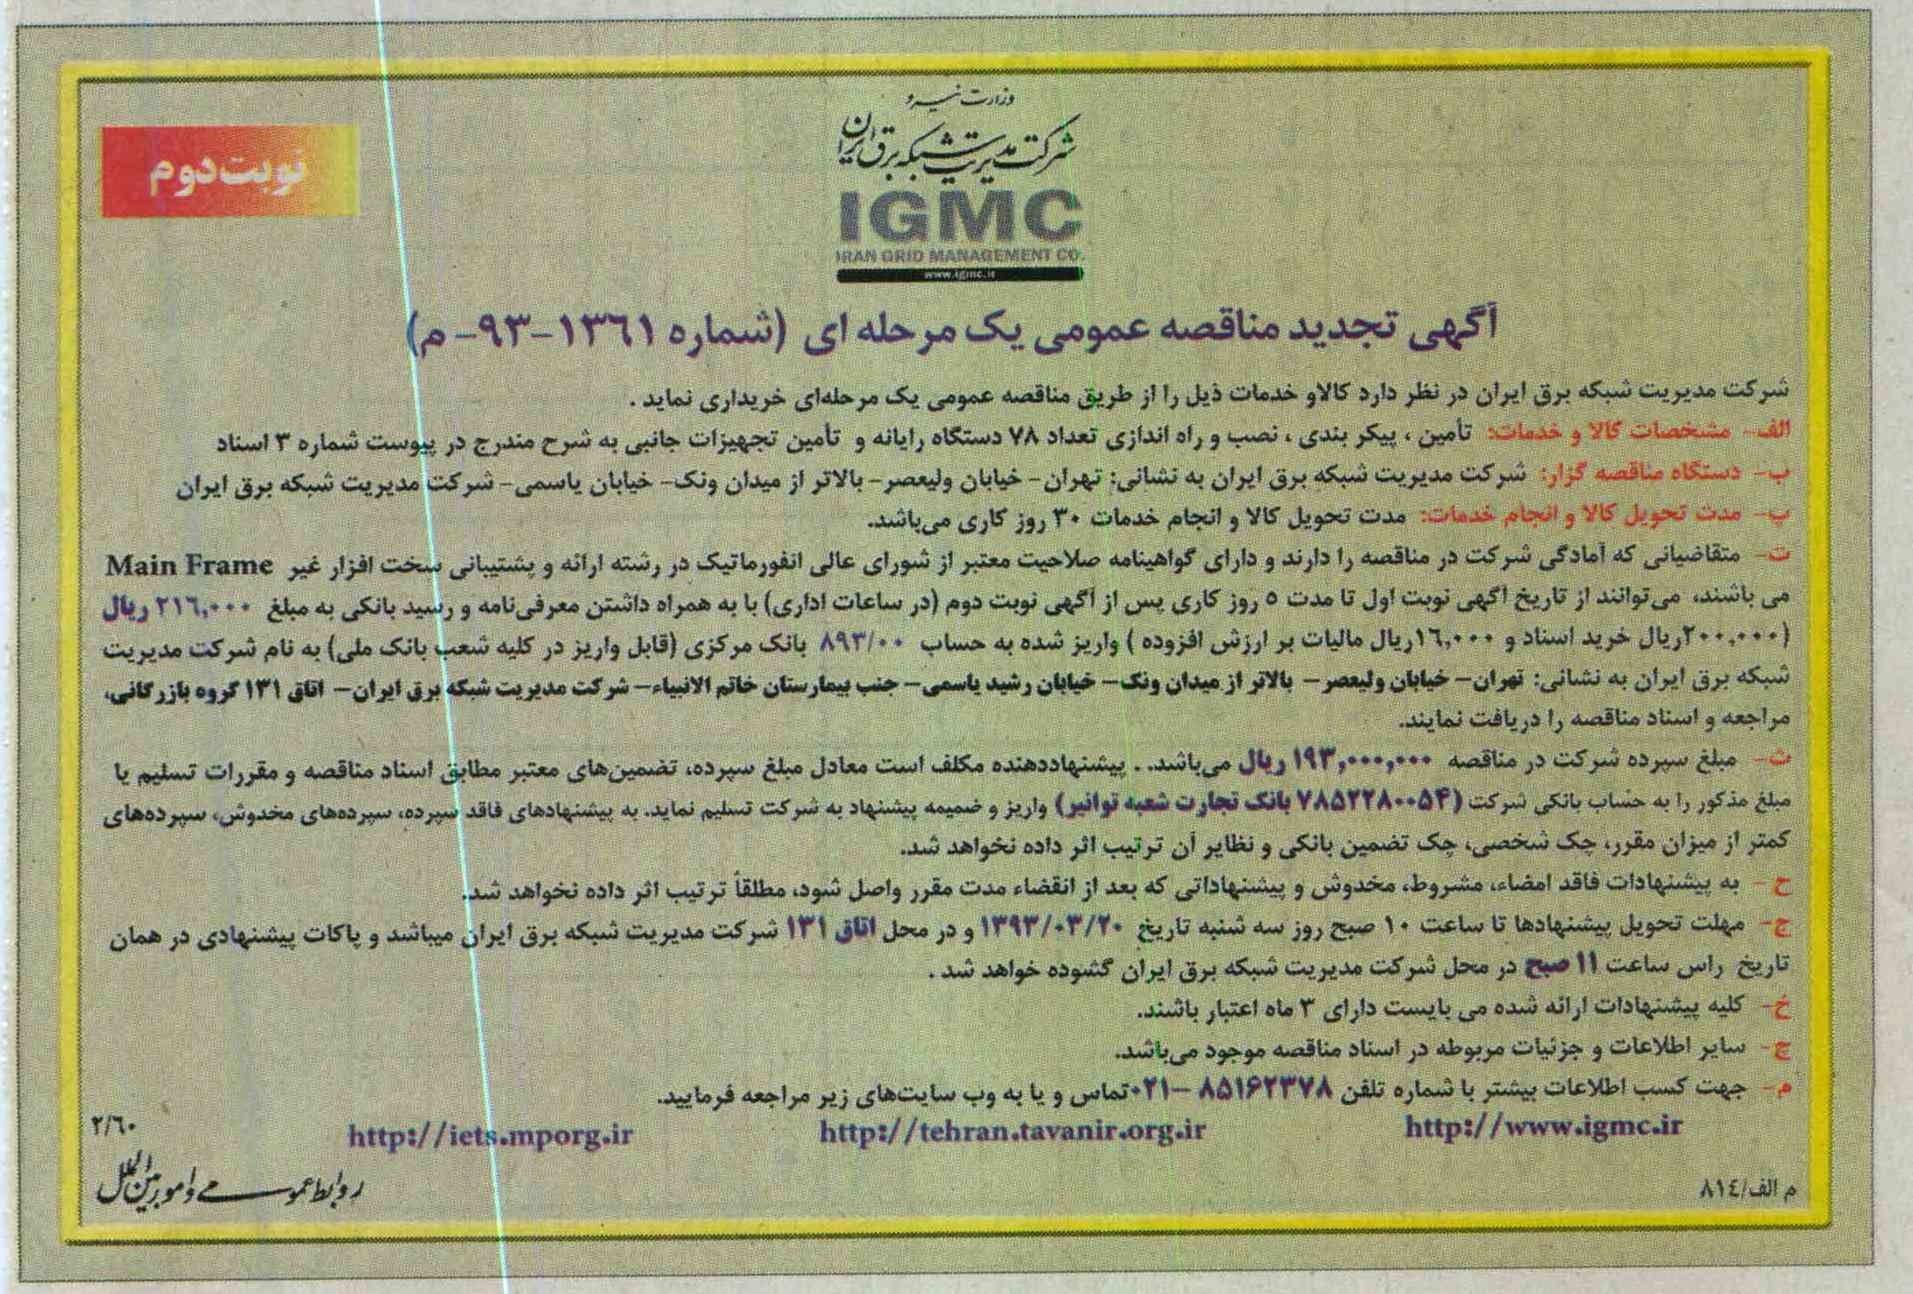 وزارت نیرو
شرکت مدیریت شبکه برق ایران
نوبت دوم
IGMC
IRAN GRID MANAGEMENT CO.
www.igmc.ir
آگهی تجدید مناقصه عمومی یک مرحله ای (شماره ۱۳۶۱-۹۳- م)
شرکت مدیریت شبکه برق ایران در نظر دارد کالاو خدمات ذیل را از طریق مناقصه عمومی یک مرحله‌ای خریداری نماید .
الف- مشخصات کالا و خدمات: تأمین ، پیکر بندی ، نصب و راه اندازی تعداد ۷۸ دستگاه رایانه و تأمین تجهیزات جانبی به شرح مندرج در پیوست شماره ۳ اسناد
ب- دستگاه مناقصه گزار: شرکت مدیریت شبکه برق ایران به نشانی: تهران- خیابان ولیعصر- بالاتر از میدان ونک- خیابان یاسمی- شرکت مدیریت شبکه برق ایران
پ- مدت تحویل کالا و انجام خدمات: مدت تحویل کالا و انجام خدمات ۳۰ روز کاری می‌باشد.
ت- متقاضیانی که آمادگی شرکت در مناقصه را دارند و دارای گواهینامه صلاحیت معتبر از شورای عالی انفورماتیک در رشته ارائه و پشتیبانی سخت افزار غیر Main Frame
می باشند، می‌توانند از تاریخ آگهی نوبت اول تا مدت ۵ روز کاری پس از آگهی نوبت دوم (در ساعات اداری) با به همراه داشتن معرفی‌نامه و رسید بانکی به مبلغ ۲۱۶,۰۰۰ ریال
(۲۰۰,۰۰۰ریال خرید اسناد و ۱۶,۰۰۰ریال مالیات بر ارزش افزوده ) واریز شده به حساب ۸۹۳/۰۰ بانک مرکزی (قابل واریز در کلیه شعب بانک ملی) به نام شرکت مدیریت
شبکه برق ایران به نشانی: تهران- خیابان ولیعصر- بالاتر از میدان ونک- خیابان رشید یاسمی- جنب بیمارستان خاتم الانبیاء- شرکت مدیریت شبکه برق ایران- اتاق ۱۳۱ گروه بازرگانی،
مراجعه و اسناد مناقصه را دریافت نمایند.
ث- مبلغ سپرده شرکت در مناقصه ۱۹۳,۰۰۰,۰۰۰ ریال می‌باشد. . پیشنهاددهنده مکلف است معادل مبلغ سپرده، تضمین‌های معتبر مطابق اسناد مناقصه و مقررات تسلیم یا
مبلغ مذکور را به حساب بانکی شرکت (۷۸۵۲۲۸۰۰۵۴ بانک تجارت شعبه توانیر) واریز و ضمیمه پیشنهاد به شرکت تسلیم نماید. به پیشنهادهای فاقد سپرده، سپرده‌های مخدوش، سپرده‌های
کمتر از میزان مقرر، چک شخصی، چک تضمین بانکی و نظایر آن ترتیب اثر داده نخواهد شد.
ح- به پیشنهادات فاقد امضاء، مشروط، مخدوش و پیشنهاداتی که بعد از انقضاء مدت مقرر واصل شود، مطلقاً ترتیب اثر داده نخواهد شد.
چ- مهلت تحویل پیشنهادها تا ساعت ۱۰ صبح روز سه شنبه تاریخ ۱۳۹۳/۰۳/۲۰ و در محل اتاق ۱۳۱ شرکت مدیریت شبکه برق ایران میباشد و پاکات پیشنهادی در همان
تاریخ راس ساعت ۱۱ صبح در محل شرکت مدیریت شبکه برق ایران گشوده خواهد شد .
خ- کلیه پیشنهادات ارائه شده می بایست دارای ۳ ماه اعتبار باشند.
چ- سایر اطلاعات و جزئیات مربوطه در اسناد مناقصه موجود می‌باشد.
م- جهت کسب اطلاعات بیشتر با شماره تلفن ۸۵۱۶۲۳۷۸ -۰۲۱تماس و یا به وب سایت‌های زیر مراجعه فرمایید.
http://www.igmc.ir http://tehran.tavanir.org.ir http://iets.mporg.ir
۲/۶۰
روابط عمومی و امور بین الملل
م الف/۸۱۴